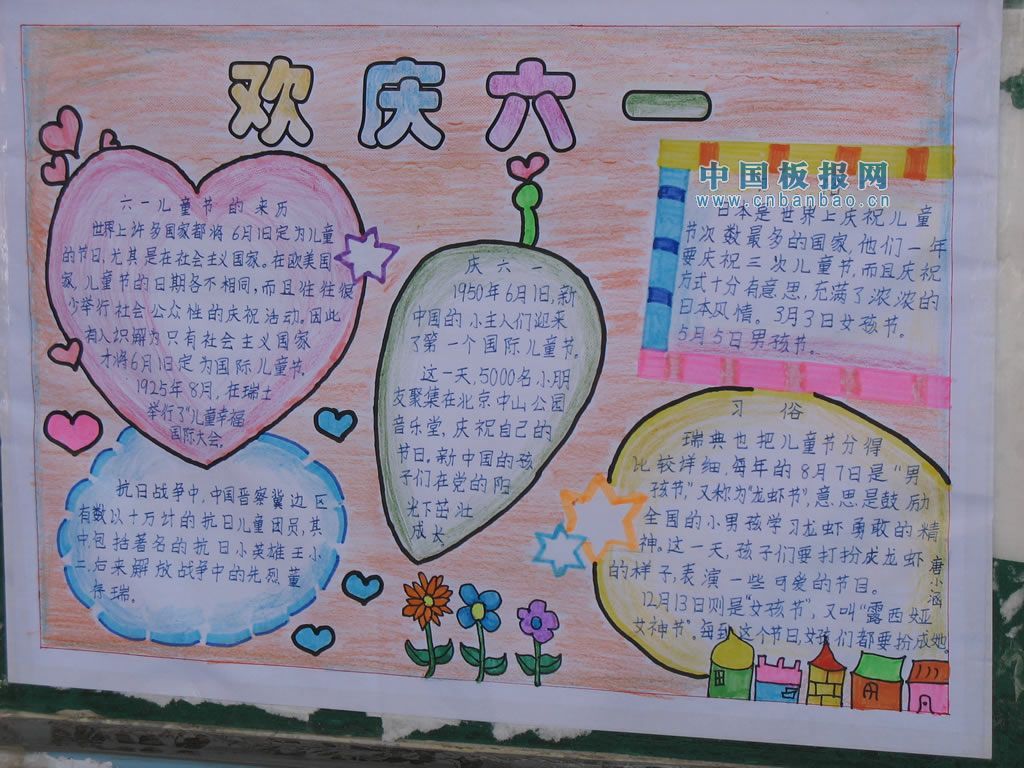 欢庆六一
六一儿童节的来历
世界上许多国家都将6月1日定为儿童
的节日,尤其是在社会主义国家。在欧美国
家,儿童节的日期各不相同,而且往往很
少举行社会公众性的庆祝活动,因此
有人误解为只有社会主义国家
才将6月1日定为国际儿童节.
1925年8月,在瑞士
举行了"儿童幸福
国际大会。
抗日战争中,中国晋察冀边区
有数以十万计的抗日儿童团员,其
中,包括著名的抗日小英雄王小
二,后来解放战争中的先烈董
存瑞。
庆六一
1950年6月1日,新
中国的小主人们迎来
了第一个国际儿童节。
这一天,5000名小朋
友聚集在北京中山公园
音乐堂,庆祝自己的
节日.新中国的孩
子们在党的阳
光下茁壮
成长
中国板报网
www.cnbanbao.cn
日本是世界上庆祝儿童
节次数最多的国家,他们一年
要庆祝三次儿童节,而且庆祝
方式十分有意思,充满了浓浓的
日本风情。3月3日女孩节。
5月5日男孩节。
习俗
瑞典也把儿童节分得
比较详细,每年的8月7日是"男
孩节",又称为"龙虾节",意思是鼓励
全国的小男孩学习龙虾勇敢的精
神。这一天,孩子们要打扮成龙虾
的样子,表演一些可爱的节目。
12月13日则是"女孩节",又叫"露西娅
女神节"。每到这个节日,女孩们都要扮成她。
唐小涵